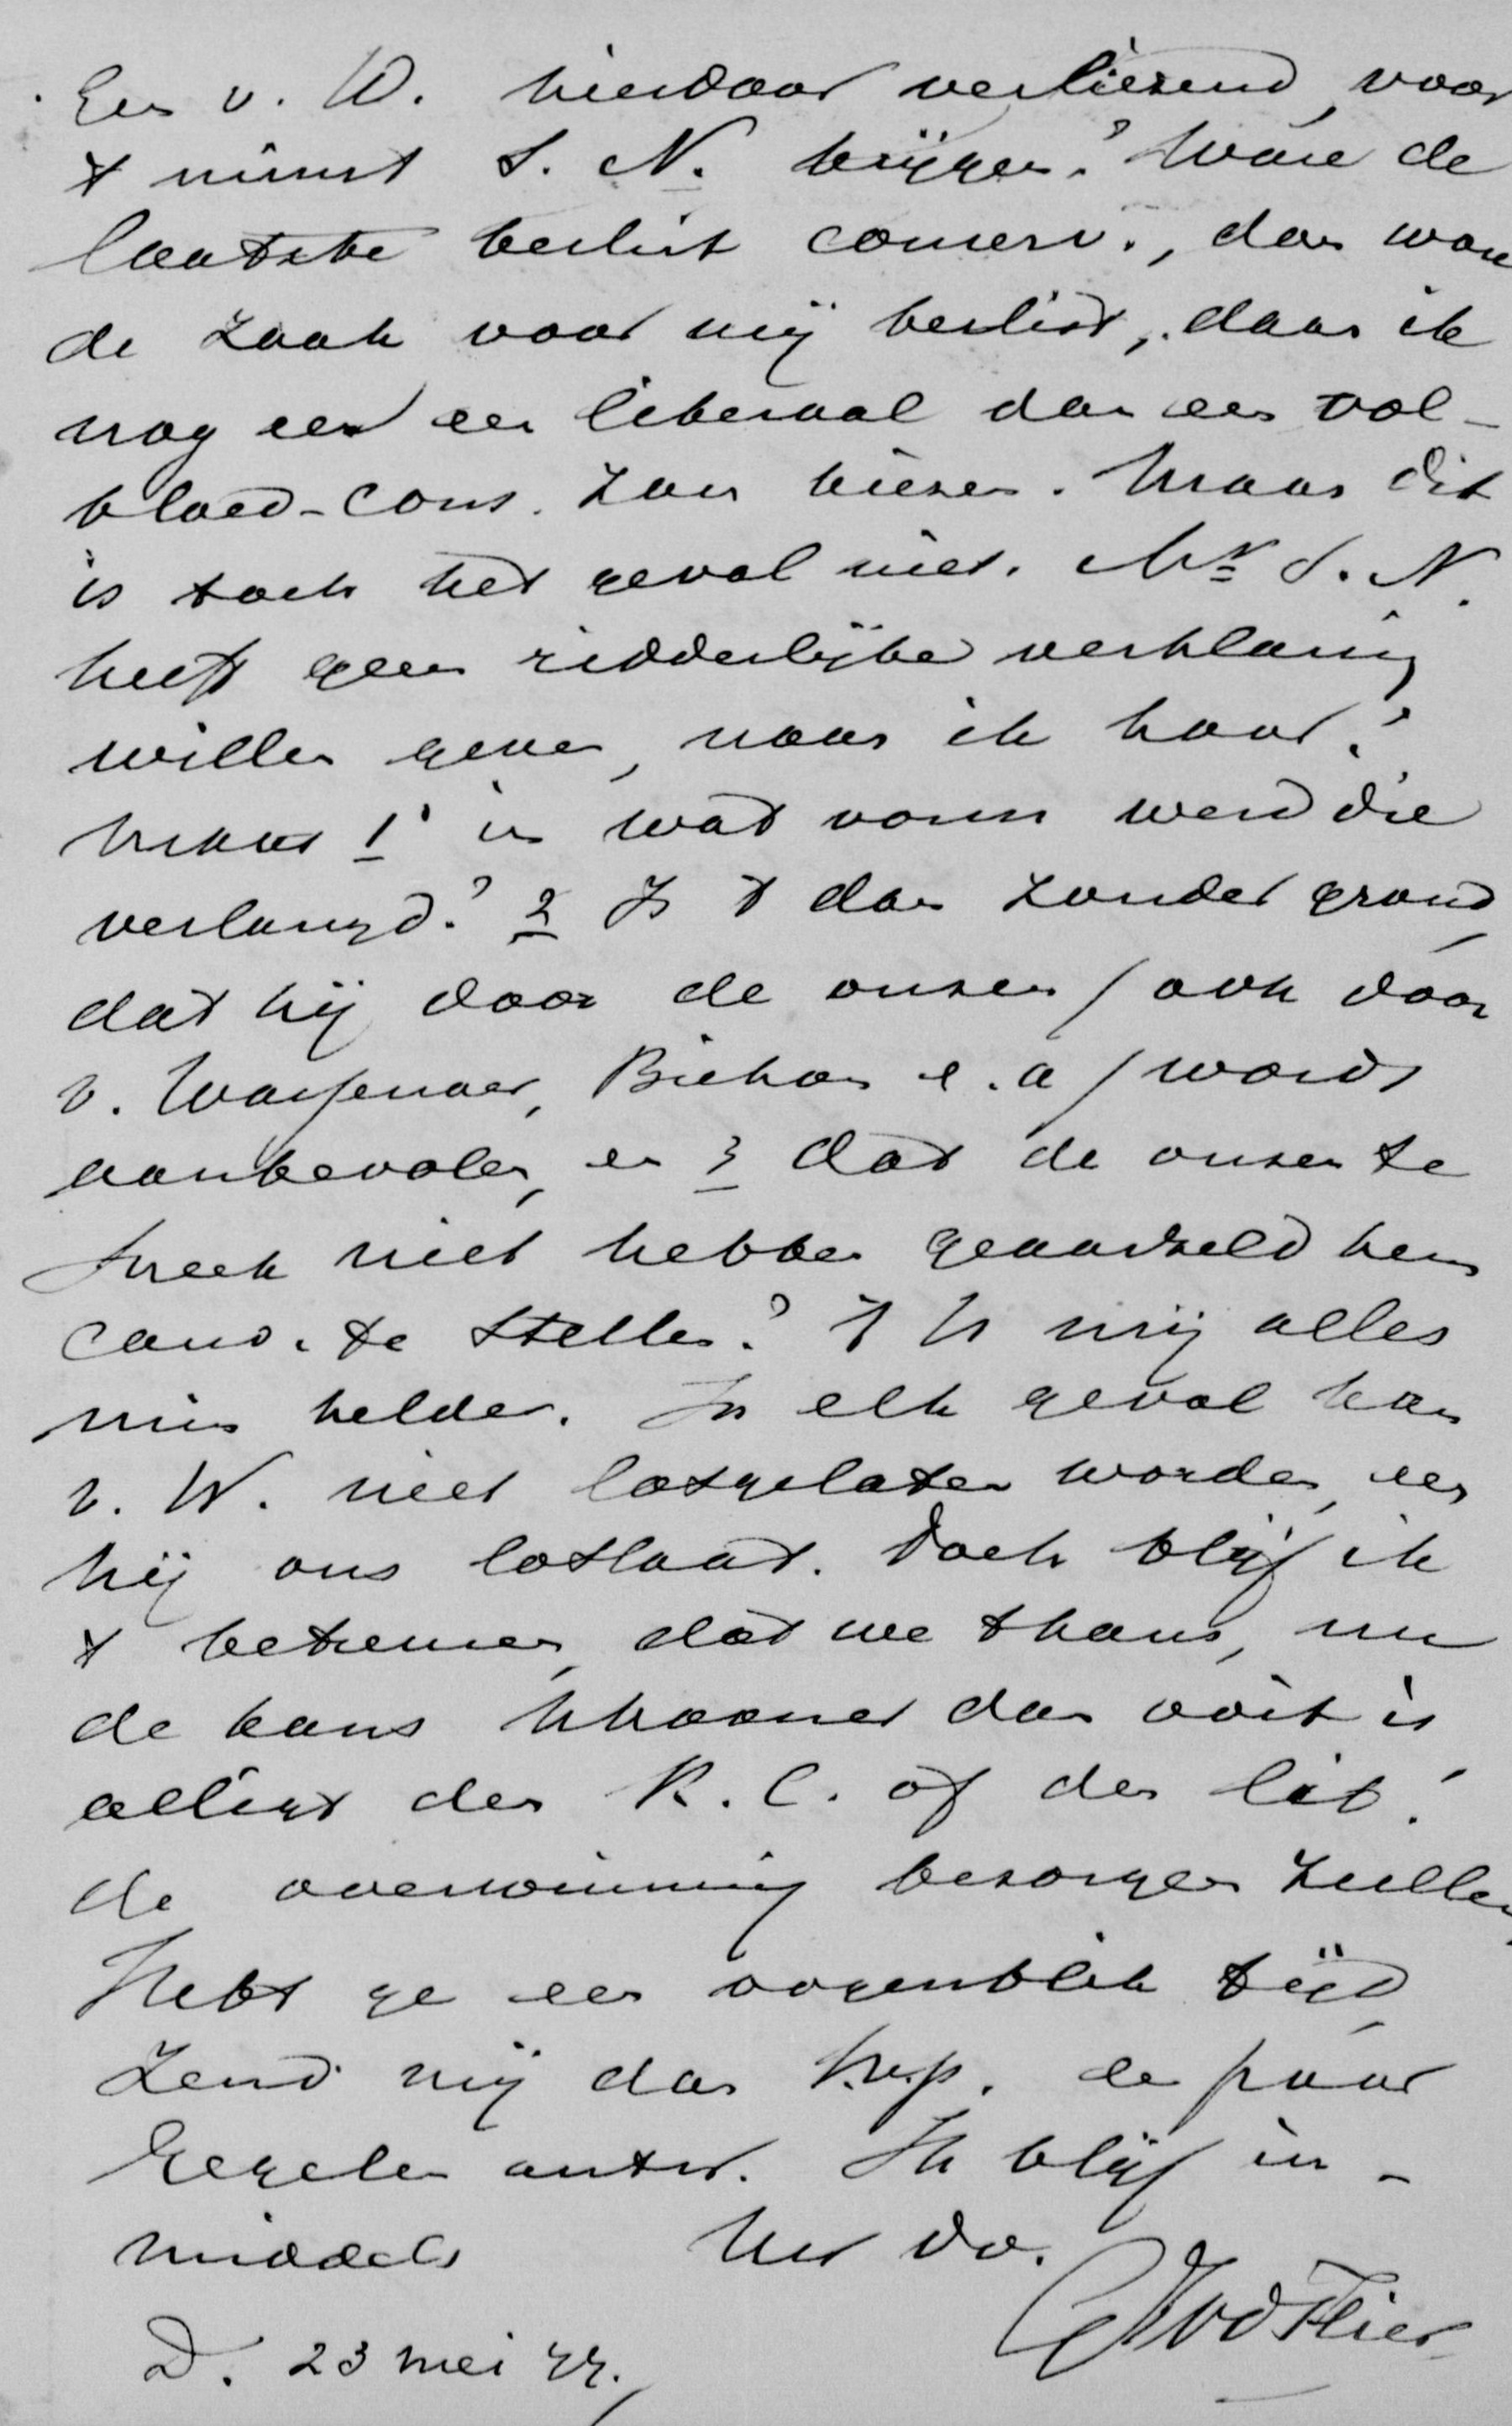 En v. W. hierdoor verliezend, voor
't minst S. N. krijgen? Ware de
laatste beslist conserv., dan ware
de zaak voor mij beslist, daar ik
nog eer een liberaal dan een vol-
bloed-cons. zou kiezen. Maar dit
is toch het geval niet. Mr S. N.
heeft geen ridderlijke verklaring
willen geven, naar ik hoor?
maar 1° in wat vorm werd die
verlangd? 2 Is 't dan zonder grond,
dat hij door de onzen / ook door
v. Wassenaer, Bichon e. a / wordt
aanbevolen, en 3 dat de onzen te
Sneek niet hebben geaarzeld hem
cand. te stellen? 't Is mij alles
min helder. In elk geval kan
v. W. niet losgelaten worden, eer
hij ons loslaat. Doch blijf ik
't betreuren, dat we thans, nu
de kans schooner dan ooit is
alligt den R. C. of den lib!
de overwinning bezorgen zullen.
Hebt ge een oogenblik tijd,
zend mij dan s.v.p. een paar
regelen antw. Ik blijf in-
middels Uw dv.
v d Flier
D. 23 mei 77.